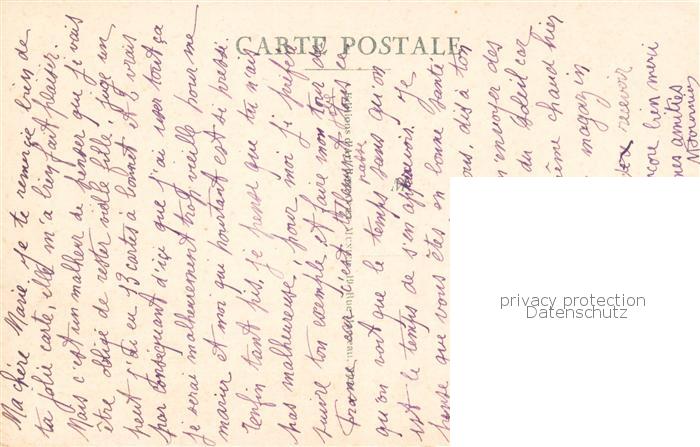 CARTE POSTALE
Ma chère Marie je te remercie bien de
ta jolie carte, elle m'a bien fait plaisir.
Mais c'est un malheur de penser que je vais
être obligé de rester vieille fille, juge un
peut j'ai eu 13 cartes à bonnet et 6 vrais
par conséquant d'içi que j'ai user tout ça
je serai malheureument trop vieille pour me
marier et moi qui pourtant est si pressé.
Enfin tant pis, je pense que tu n'ais
pas malheureuse, pour moi je préfer
suivre ton exemple et faire mon tour de
France car c'est tellement
qu'on voit que le temps passe sans qu'on
est le temps de s'en apercevoir. Je
pense que vous êtes en bonne santé
dis à ton
m'envoyer des
du Soleil car
même chaud bien
magazin
recevoir
bien merci
mes amitiés
privacy protection
Datenschutz